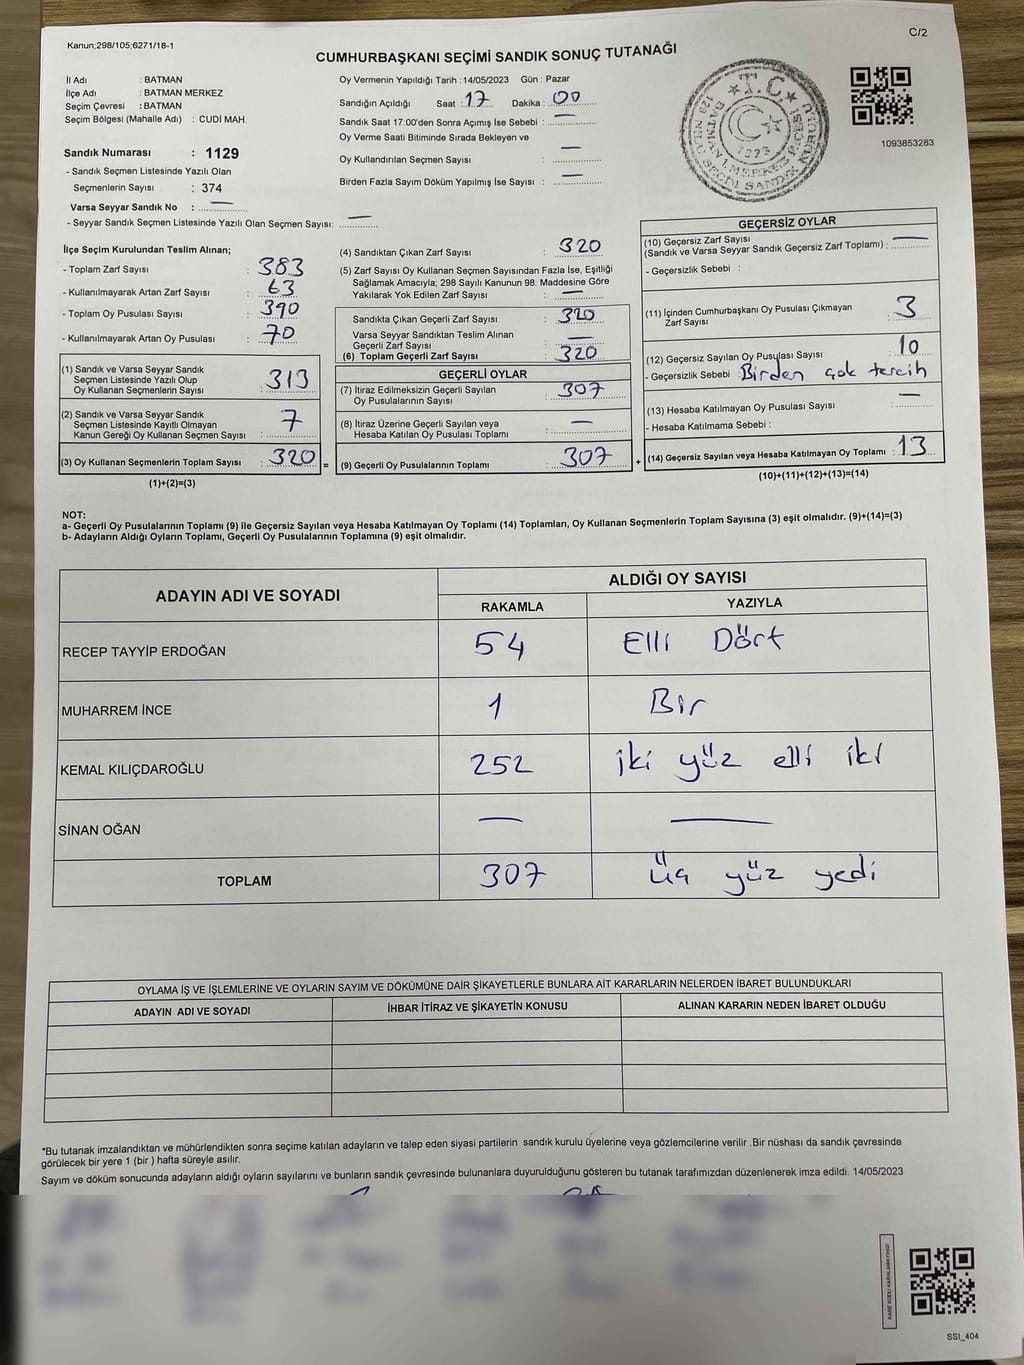 Kanun;298/105;6271/18-1
C/2
CUMHURBAŞKANI SEÇİMİ SANDIK SONUÇ TUTANAĞI
İl Adı : BATMAN
İlçe Adı : BATMAN MERKEZ
Seçim Çevresi : BATMAN
Seçim Bölgesi (Mahalle Adı) : CUDİ MAH.
Sandık Numarası : 1129
- Sandık Seçmen Listesinde Yazılı Olan
Seçmenlerin Sayısı : 374
Varsa Seyyar Sandık No : —
- Seyyar Sandık Seçmen Listesinde Yazılı Olan Seçmen Sayısı: —
Oy Vermenin Yapıldığı Tarih : 14/05/2023 Gün : Pazar
Sandığın Açıldığı Saat : 17 Dakika : 00
Sandık Saat 17:00'den Sonra Açımış İse Sebebi : —
Oy Verme Saati Bitiminde Sırada Bekleyen ve
Oy Kullandırılan Seçmen Sayısı : —
Birden Fazla Sayım Döküm Yapılmış İse Sayısı : —
T.C.
1093853283
İlçe Seçim Kurulundan Teslim Alınan;
- Toplam Zarf Sayısı : 383
- Kullanılmayarak Artan Zarf Sayısı : 63
- Toplam Oy Pusulası Sayısı : 390
- Kullanılmayarak Artan Oy Pusulası : 70
(1) Sandık ve Varsa Seyyar Sandık
Seçmen Listesinde Yazılı Olup
Oy Kullanan Seçmenlerin Sayısı : 313
(2) Sandık ve Varsa Seyyar Sandık
Seçmen Listesinde Kayıtlı Olmayan
Kanun Gereği Oy Kullanan Seçmen Sayısı : 7
(3) Oy Kullanan Seçmenlerin Toplam Sayısı : 320 =
(1)+(2)=(3)
(4) Sandıktan Çıkan Zarf Sayısı : 320
(5) Zarf Sayısı Oy Kullanan Seçmen Sayısından Fazla İse, Eşitliği
Sağlamak Amacıyla; 298 Sayılı Kanunun 98. Maddesine Göre
Yakılarak Yok Edilen Zarf Sayısı : —
Sandıkta Çıkan Geçerli Zarf Sayısı : 320
Varsa Seyyar Sandıktan Teslim Alınan
Geçerli Zarf Sayısı : —
(6) Toplam Geçerli Zarf Sayısı : 320
GEÇERLİ OYLAR
(7) İtiraz Edilmeksizin Geçerli Sayılan
Oy Pusulalarının Sayısı : 307
(8) İtiraz Üzerine Geçerli Sayılan veya
Hesaba Katılan Oy Pusulası Toplamı : —
(9) Geçerli Oy Pusulalarının Toplamı : 307 +
GEÇERSİZ OYLAR
(10) Geçersiz Zarf Sayısı
(Sandık ve Varsa Seyyar Sandık Geçersiz Zarf Toplamı) : —
- Geçersizlik Sebebi :
(11) İçinden Cumhurbaşkanı Oy Pusulası Çıkmayan
Zarf Sayısı : 3
(12) Geçersiz Sayılan Oy Pusulası Sayısı : 10
- Geçersizlik Sebebi : Birden çok tercih
(13) Hesaba Katılmayan Oy Pusulası Sayısı : —
- Hesaba Katılmama Sebebi :
(14) Geçersiz Sayılan veya Hesaba Katılmayan Oy Toplamı : 13
(10)+(11)+(12)+(13)=(14)
NOT:
a- Geçerli Oy Pusulalarının Toplamı (9) ile Geçersiz Sayılan veya Hesaba Katılmayan Oy Toplamı (14) Toplamları, Oy Kullanan Seçmenlerin Toplam Sayısına (3) eşit olmalıdır. (9)+(14)=(3)
b- Adayların Aldığı Oyların Toplamı, Geçerli Oy Pusulalarının Toplamına (9) eşit olmalıdır.
ADAYIN ADI VE SOYADI ALDIĞI OY SAYISI
RAKAMLA YAZIYLA
RECEP TAYYİP ERDOĞAN 54 Elli Dört
MUHARREM İNCE 1 Bir
KEMAL KILIÇDAROĞLU 252 iki yüz elli iki
SİNAN OĞAN — —
TOPLAM 307 üç yüz yedi
OYLAMA İŞ VE İŞLEMLERİNE VE OYLARIN SAYIM VE DÖKÜMÜNE DAİR ŞİKAYETLERLE BUNLARA AİT KARARLARIN NELERDEN İBARET BULUNDUKLARI
ADAYIN ADI VE SOYADI İHBAR İTİRAZ VE ŞİKAYETİN KONUSU ALINAN KARARIN NEDEN İBARET OLDUĞU
*Bu tutanak imzalandıktan ve mühürlendikten sonra seçime katılan adayların ve talep eden siyasi partilerin sandık kurulu üyelerine veya gözlemcilerine verilir .Bir nüshası da sandık çevresinde
görülecek bir yere 1 (bir ) hafta süreyle asılır.
Sayım ve döküm sonucunda adayların aldığı oyların sayılarını ve bunların sandık çevresinde bulunanlara duyurulduğunu gösteren bu tutanak tarafımızdan düzenlenerek imza edildi. 14/05/2023
KARE KODU KARALAMAYINIZ!
SSI_404